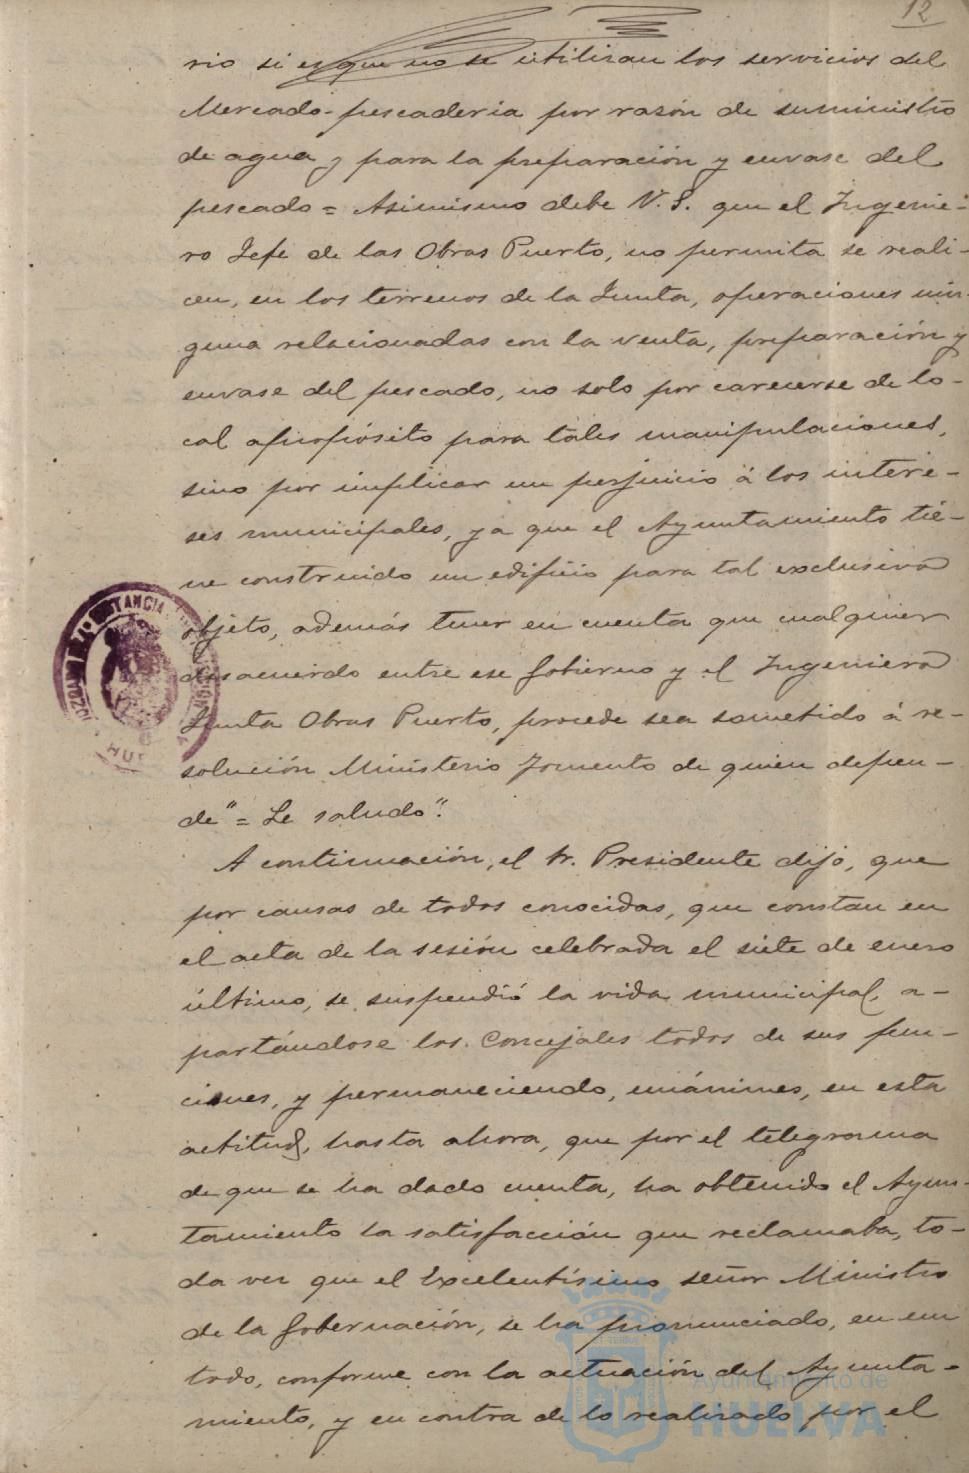 12
rio si es que no se utilizan los servicios del
Mercado-pescaderia por razón de suministro
de agua y para la preparación y envase del
pescado = Asimismo debe V. S. que el Ingenie-
ro Jefe de las Obras Puerto, no permita se reali-
cen, en los terrenos de la Junta, operaciones nin-
guna relacionadas con la venta, preparación y
envase del pescado, no solo por carecerse de lo-
cal apropósito para tales manipulaciones,
sino por implicar un perjuicio á los intere-
ses municipales, ya que el Ayuntamiento tie-
ne construido un edificio para tal exclusivo
objeto, además tener en cuenta que cualquier
desacuerdo entre ese Gobierno y el Ingeniero
Junta Obras Puerto, procede sea sometido á re-
solución Ministerio Fomento de quien depen-
de" = Le saludo".
A continuación, el Sr. Presidente dijo, que
por causas de todos conocidas, que constan en
el acta de la sesión celebrada el siete de enero
último, se suspendió la vida municipal, a-
partándose los Concejales todos de sus fun-
ciones, y permaneciendo, unánimes, en esta
actitud, hasta ahora, que por el telegrama
de que se ha dado cuenta, ha obtenido el Ayun-
tamiento la satisfacción que reclamaba, to-
da vez que el Excelentísimo señor Ministro
de la Gobernación, se ha pronunciado, en un
todo, conforme con la actuación del Ayunta-
miento, y en contra de lo realizado por el
Ayuntamiento de
HUELVA